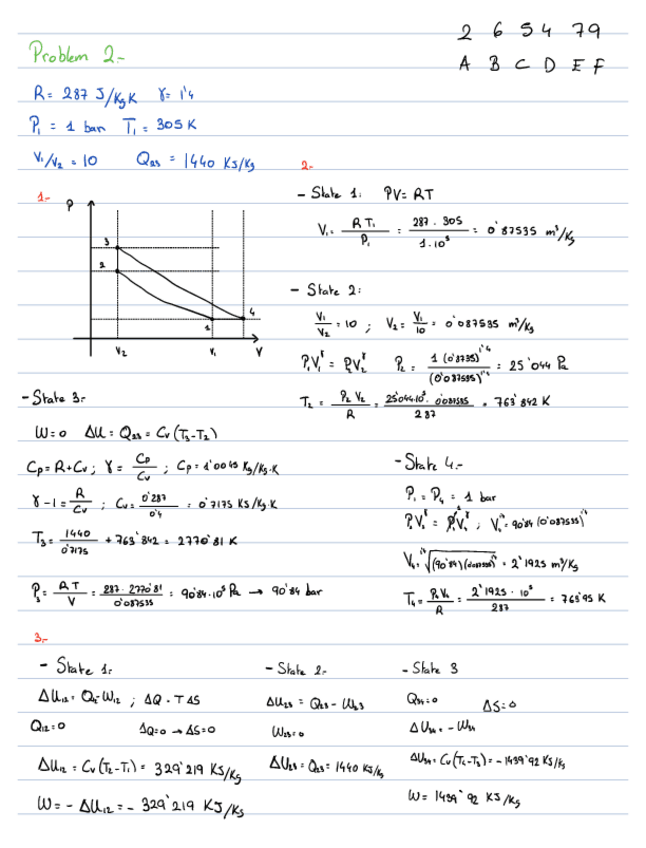 2 6 5 4 7 9
A B C D E F
Problem 2.-
R= 287 J/Kg K γ= 1'4
P₁ = 1 bar T₁ = 305 K
V₁/V₂ = 10 Q₂₃ = 1440 KJ/Kg
1.-
P
3
2
1
4
V₂ V₁ V
2.-
- State 1: PV= RT
V₁ = R T₁ / P₁ = 287 · 305 / 1·10⁵ = 0'87535 m³/Kg
- State 2:
V₁/V₂ = 10 ; V₂ = V₁/10 = 0'087535 m³/Kg
P₁V₁^γ = P₂V₂^γ P₂ = 1 (0'8735)^1'4 / (0'087535)^1'4 = 25'044 Pa
T₂ = P₂ V₂ / R = 25'044·10⁵ · 0'087535 / 287 = 763'842 K
- State 3:
W=0 ΔU = Q₂₃ = Cv (T₃-T₂)
Cp = R+Cv ; γ = Cp/Cv ; Cp = 1'0045 Kg/Kg·K
γ-1 = R/Cv ; Cv = 0'287/0'4 = 0'7175 KJ/Kg·K
T₃ = 1440/0'7175 + 763'842 = 2770'81 K
P₃ = R T / V = 287 · 2770'81 / 0'087535 = 90'84·10⁵ Pa → 90'84 bar
- State 4.-
P₁ = P₄ = 1 bar
P₃V₃^γ = P₄V₄^γ ; V₄^1'4 = 90'84 (0'087535)^1'4
V₄ = ^1'4√(90'84)(0'087535)^1'4 = 2'1925 m³/Kg
T₄ = P₄ V₄ / R = 2'1925 · 10⁵ / 287 = 763'95 K
3.-
- State 1:
ΔU₁₂ = Q₁₂ - W₁₂ ; ΔQ = T ΔS
Q₁₂ = 0 ΔQ=0 → ΔS=0
ΔU₁₂ = Cv (T₂-T₁) = 329'219 KJ/Kg
W = - ΔU₁₂ = - 329'219 KJ/Kg
- State 2:
ΔU₂₃ = Q₂₃ - W₂₃
W₂₃ = 0
ΔU₂₃ = Q₂₃ = 1440 KJ/Kg
- State 3
Q₃₄ = 0 ΔS = 0
ΔU₃₄ = - W₃₄
ΔU₃₄ = Cv (T₄-T₃) = - 1439'92 KJ/Kg
W = 1439'92 KJ/Kg